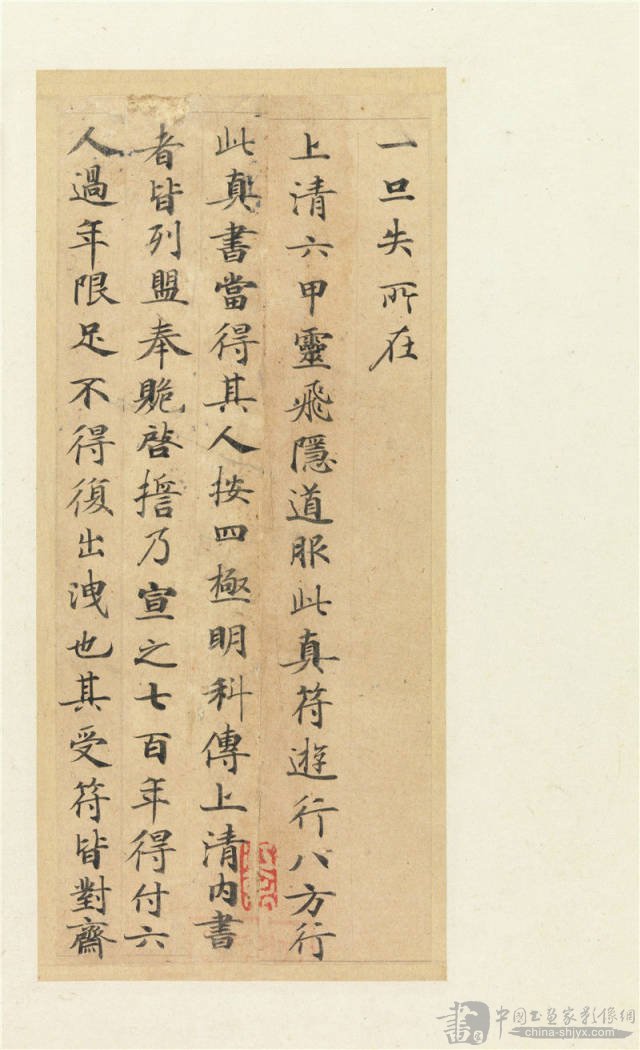 一旦失所在
上清六甲靈飛隱道服此真符遊行八方行
此真書當得其人按四極明科傳上清內書
者皆列盟奉貺啓擔乃宣之七百年得付六
人過年限足不得復出洩也其受符皆對齋
中国书画家影像網
china-shjyx.com